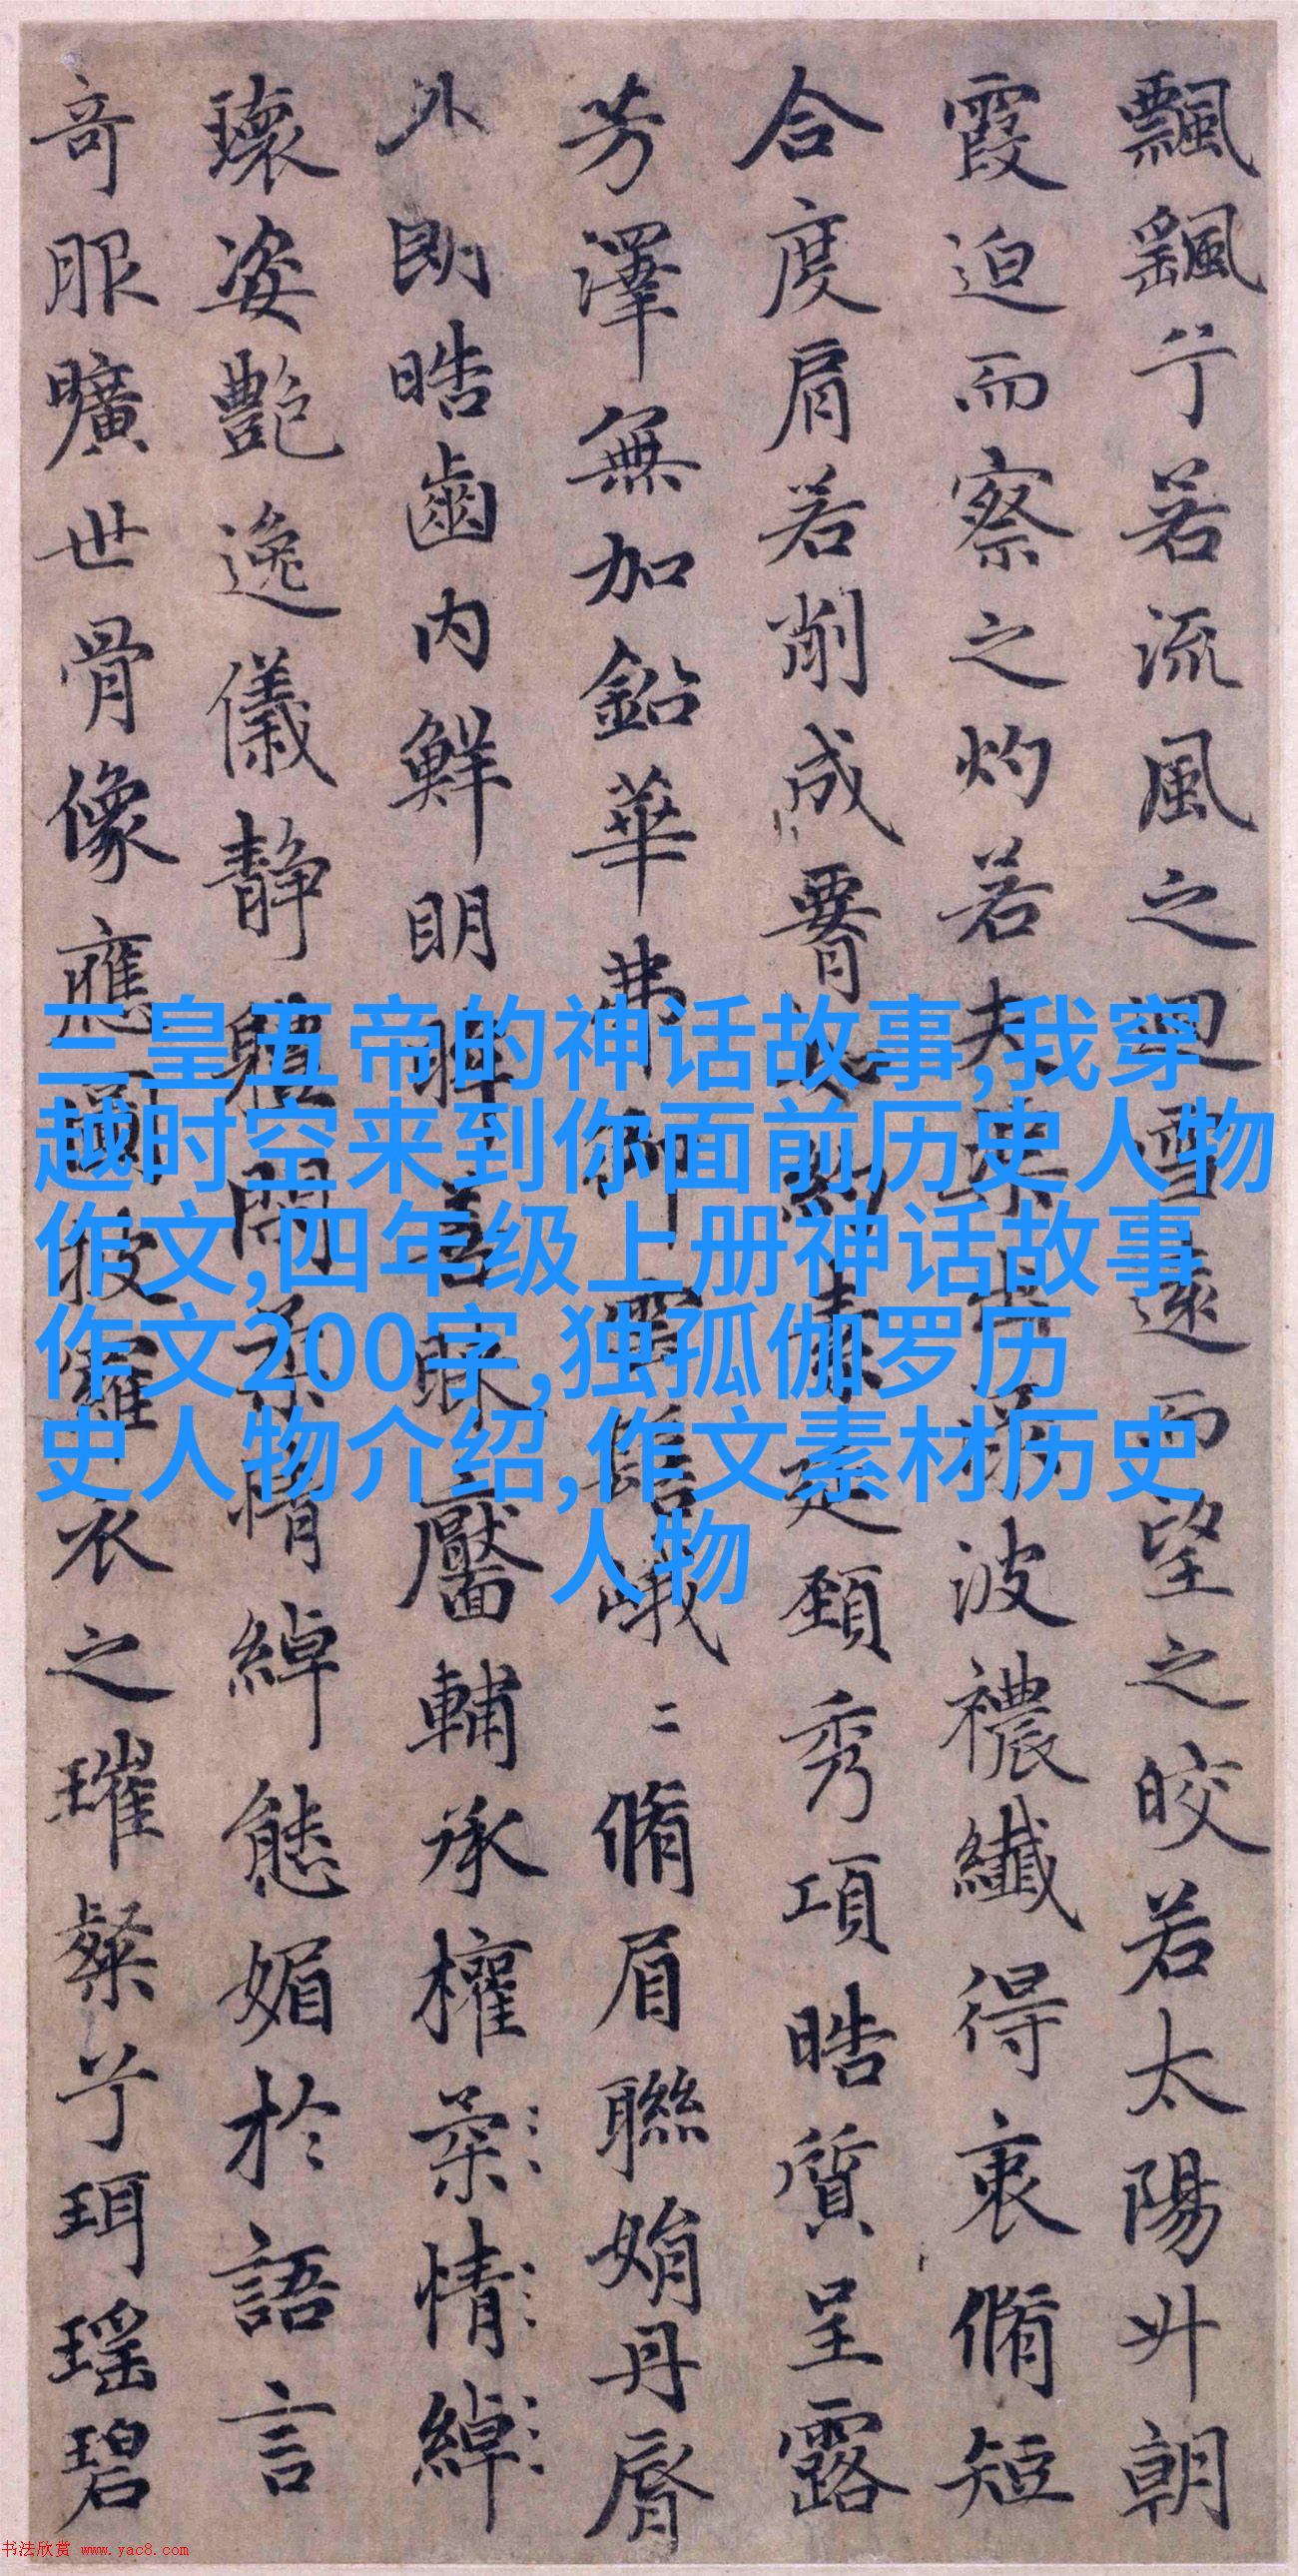 飄飖兮若流風之迴雪遠而望之皎若太陽升朝
霞迫而察之灼若夫渠出淥波襛纖得衷脩短
合度肩若削成䙅如約素延頸秀項皓質呈露
芳澤無加鉛華弗御雲髻峨〻脩眉聯娟丹脣
外朗皓齒内鮮明眸善睞靨輔承權柔情綽
瓌姿艷逸儀静軆閑柔情綽態媚於語言
奇服曠世骨像應圖披羅衣之璀粲兮珥瑶碧
三皇五帝的神话故事,我穿
越时空来到你面前历史人物
作文,四年级上册神话故事
作文200字,独孤伽罗历
史人物介绍,作文素材历史
人物
书法欣赏 www.yac8.com